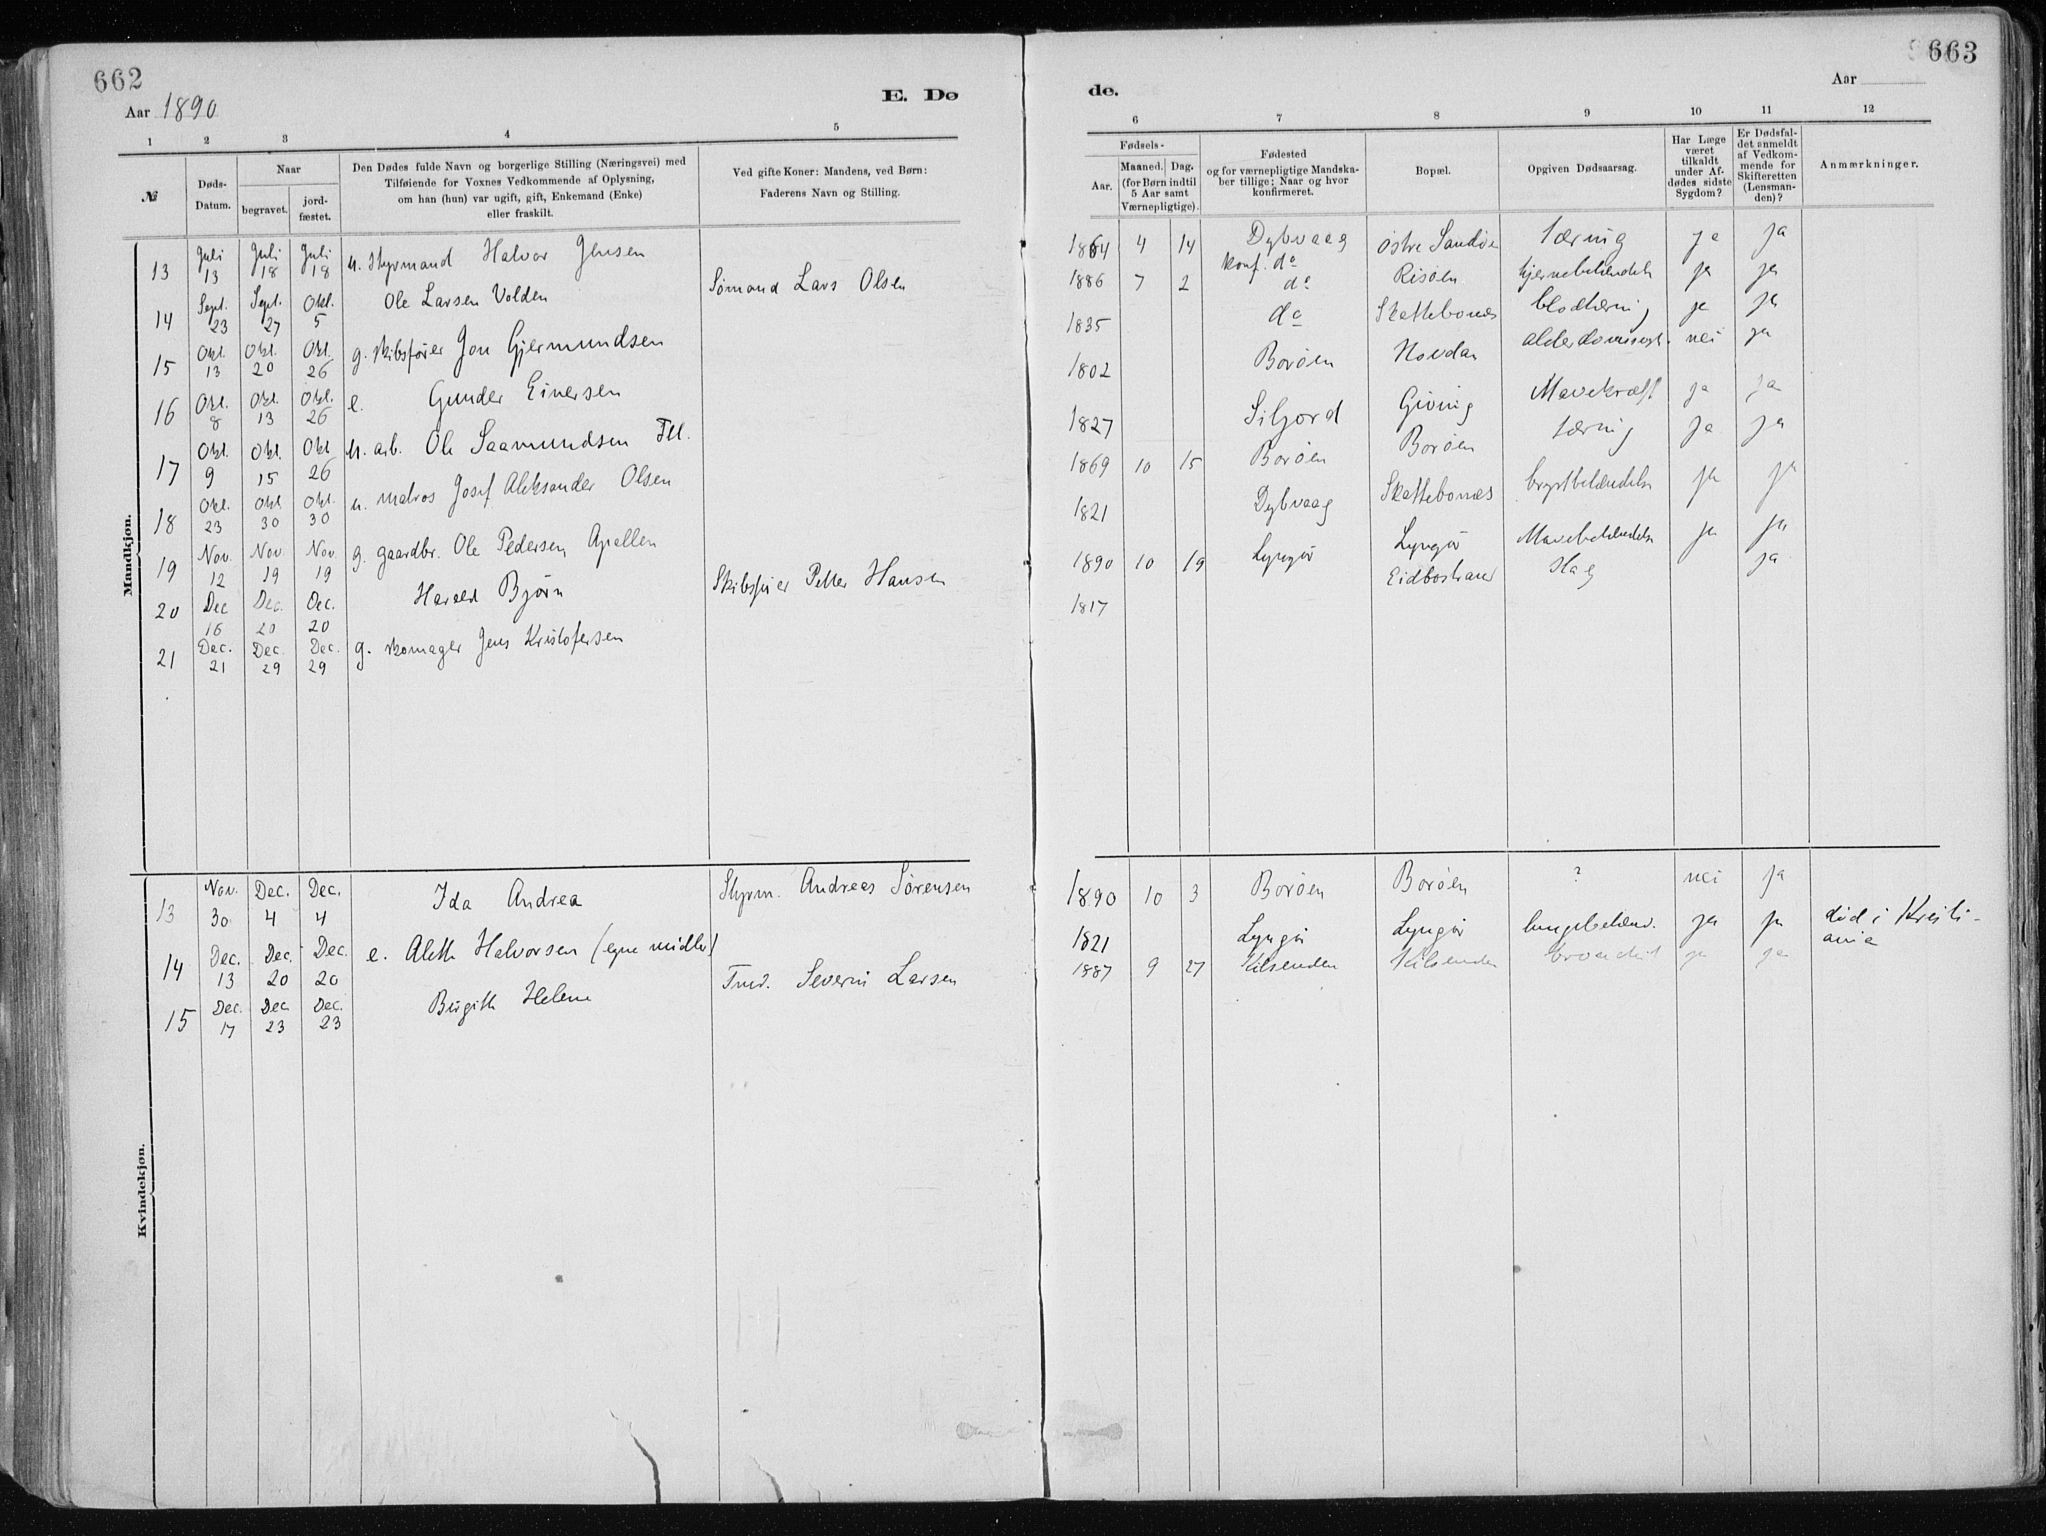 662
Aar 1890
E. Dø
1 2 3 4 5
№
Døds-Datum.
Naar
begravet.
jord-fæstet.
Den Dødes fulde Navn og borgerlige Stilling (Næringsvei) med
Tilføiende for Voxnes Vedkommende af Oplysning,
om han (hun) var ugift, gift, Enkemand (Enke)
eller fraskilt.
Ved gifte Koner: Mandens, ved Børn:
Faderens Navn og Stilling.
Mandkjøn.
13 Juli 13 Juli 18 Juli 18 u. Styrmand Halvor Jensen
14 Sept. 23 Sept. 27 Okt. 5 Ole Larsen Volden Sømand Lars Olsen
15 Okt. 13 Okt. 20 Okt. 26 g. skibsfører Jon Gjermundsen
16 Okt. 8 Okt. 13 Okt. 26 e. Gunder Einersen
17 Okt. 9 Okt. 15 Okt 26 u. arb. Ole Saamundsen
18 Okt. 23 Okt 30 Okt 30 u. matros Josef Aleksander Olsen
19 Nov. 12 Nov 19 Nov. 19 g. gaardbr. Ole Pedersen Apallen
20 Dec 16 Dec. 20 Dec. 20 Harald Bjørn Skibsfører Petter Hansen
21 Dec. 21 Dec. 29 Dec. 29 g. skomager Jens Kristofersen
Kvindekjøn.
13 Nov. 30 Dec. 4 Dec. 4 Ida Andrea Styrm. Andreas Sørensen
14 Dec. 13 Dec. 20 Dec. 20 e. Aleth Halvorsen (egne midler)
15 Dec. 17 Dec 23 Dec. 23 Birgith Helene Tmd. Severin Larsen
663
Aar
de.
6 7 8 9 10 11 12
Fødsels-
Aar.
Maaned. Dag.
(for Børn indtil
5 Aar samt
Værnepligtige).
Fødested
og for værnepligtige Mandska-
ber tillige; Naar og hvor
konfirmeret.
Bopæl.
Opgiven Dødsaarsag.
Har Læge
været
tilkaldt
under Af-
dødes sidste
Sygdom?
Er Dødsfal-
det anmeldt
af Vedkom-
mende for
Skifteretten
(Lensman-
den)?
Anmærkninger.
1864 4 14 Dybvaag konf. do Østre Sandøen tæring ja ja
1886 7 2 do Risøen hjernebetændelse ja ja
1835 do Skattebonæs blodtæring ja ja
1802 Borøen Hovdan alderdomssvagh. nei ja
1827 Siljord Giving Mavekræft ja ja
1869 10 15 Borøen Borøen tæring ja ja
1821 Dybvaag Skattebonæs brystbetændelse ja ja
1890 10 19 Lyngør Lyngør Mavebetændelse ja ja
1817 Eidbostrand Slag ja
1890 10 3 Borøen Borøen ? nei ja
1821 Lyngør Lyngør lungebetænd. ja ja død i Kristi-
ania
1887 9 27 Kilsenden Kilsenden bronchit ja ja